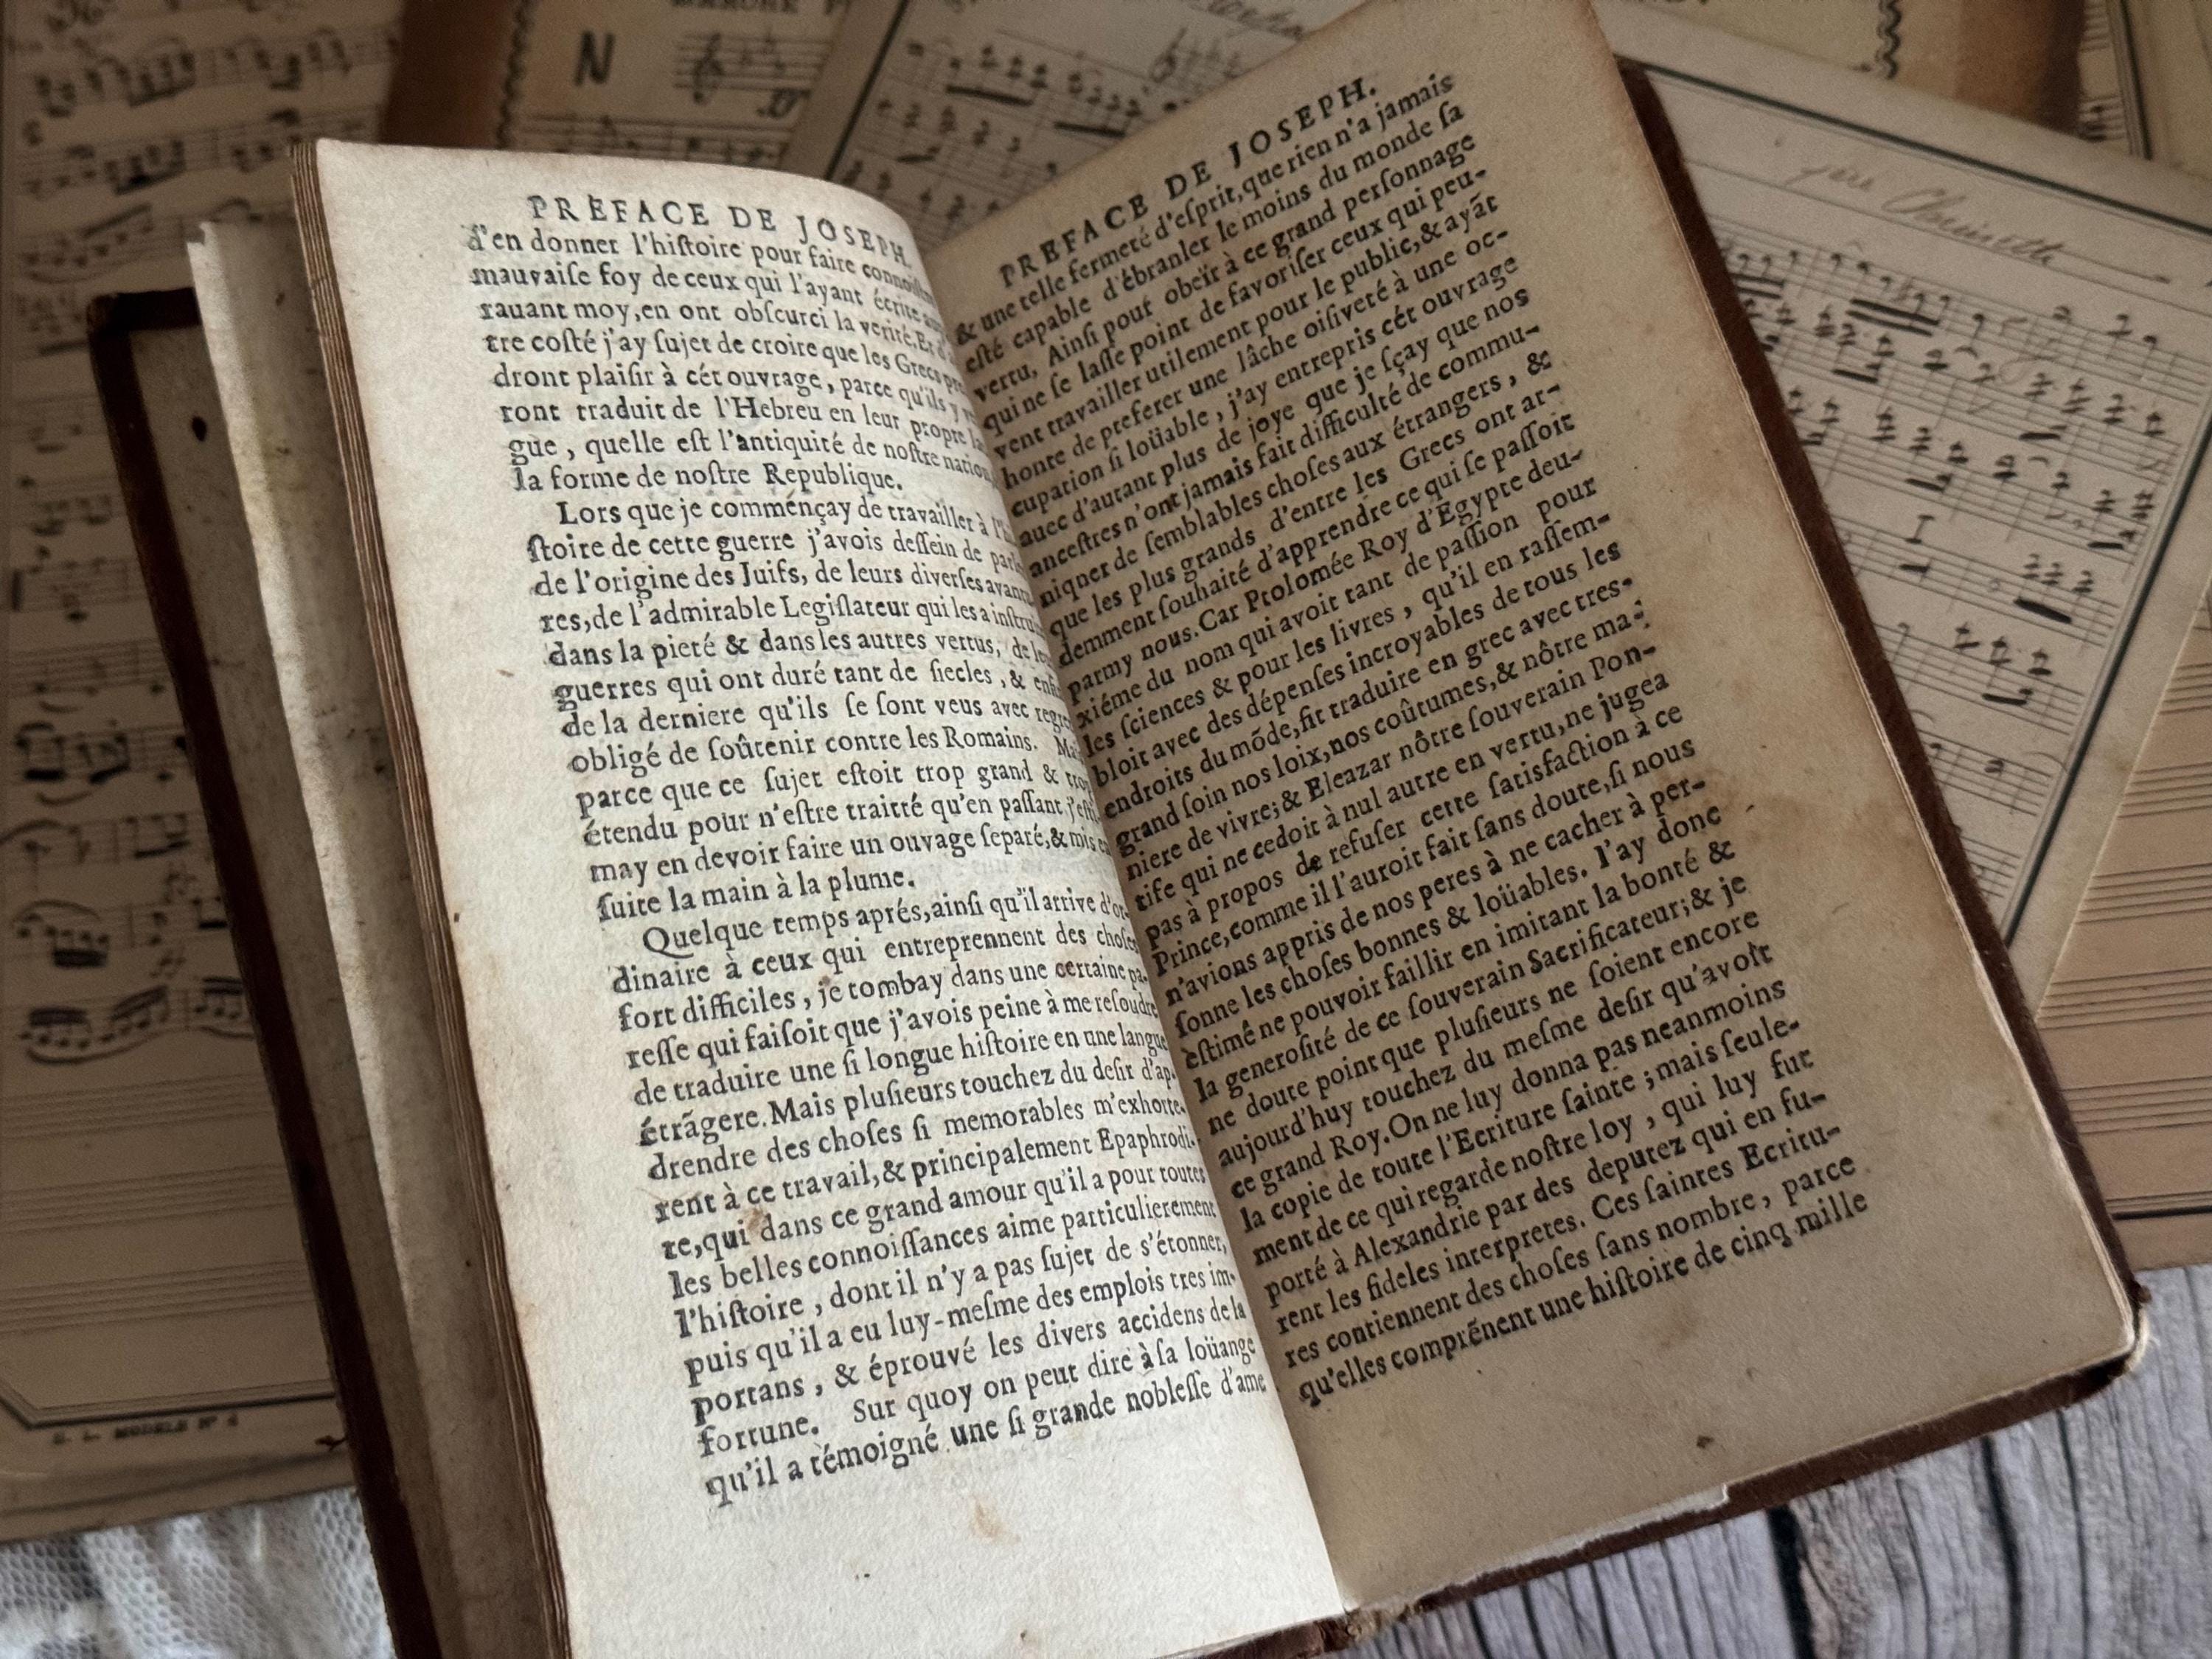 PREFACE DE JOSEPH.
d'en donner l'hiſtoire pour faire connoiſtre
mauvaiſe foy de ceux qui l'ayant écrite au
rauant moy, en ont obſcurci la verité. Et d'
tre coſté j'ay ſujet de croire que les Grecs
dront plaiſir à cét ouvrage, parce qu'ils y
ront traduit de l'Hebreu en leur propre
gue, quelle eſt l'antiquité de noſtre nation
la forme de noſtre Republique.
Lors que je commençay de travailler à
ſtoire de cette guerre j'avois deſſein de
de l'origine des Juifs, de leurs diverſes
res, de l'admirable Legiſlateur qui les a
dans la pieté & dans les autres vertus, de
guerres qui ont duré tant de ſiecles, &
de la derniere qu'ils ſe ſont veus avec
obligé de ſoûtenir contre les Romains.
parce que ce ſujet eſtoit trop grand &
étendu pour n'eſtre traitté qu'en paſſant,
may en devoir faire un ouvage ſeparé, & mis
ſuite la main à la plume.
Quelque temps aprés, ainſi qu'il arrive d'or-
dinaire à ceux qui entreprennent des choſes
fort difficiles, je tombay dans une certaine pa-
reſſe qui faiſoit que j'avois peine à me reſoudre
de traduire une ſi longue hiſtoire en une langue
étrãgere. Mais pluſieurs touchez du deſir d'ap-
drendre des choſes ſi memorables m'exhorte-
rent à ce travail, & principalement Epaphrodi-
te, qui dans ce grand amour qu'il a pour toutes
les belles connoiſſances aime particulierement
l'hiſtoire, dont il n'y a pas ſujet de s'étonner,
puis qu'il a eu luy-meſme des emplois tres im-
portans, & éprouvé les divers accidens de la
fortune. Sur quoy on peut dire à ſa loüange
qu'il a témoigné une ſi grande nobleſſe d'ame
PREFACE DE JOSEPH.
& une telle fermeté d'eſprit, que rien n'a jamais
eſté capable d'ébranler le moins du monde ſa
vertu. Ainſi pour obeïr à ce grand perſonnage
qui ne ſe laſſe point de favoriſer ceux qui peu-
vent travailler utilement pour le public, & ayãt
honte de preferer une lâche oiſiveté à une oc-
cupation ſi loüable, j'ay entrepris cét ouvrage
auec d'autant plus de joye que je ſçay que nos
anceſtres n'ont jamais fait difficulté de commu-
niquer de ſemblables choſes aux étrangers, &
que les plus grands d'entre les Grecs ont ar-
demment ſouhaité d'apprendre ce qui ſe paſſoit
parmy nous. Car Ptolomée Roy d'Egypte deu-
xiéme du nom qui avoit tant de paſſion pour
les ſciences & pour les livres, qu'il en raſſem-
bloit avec des dépenſes incroyables de tous les
endroits du mõde, fit traduire en grec avec tres-
grand ſoin nos loix, nos coûtumes, & nôtre ma-
niere de vivre; & Eleazar nôtre ſouverain Pon-
tife qui ne cedoit à nul autre en vertu, ne jugea
pas à propos de refuſer cette ſatisfaction à ce
Prince, comme il l'auroit fait ſans doute, ſi nous
n'avions appris de nos peres à ne cacher à per-
ſonne les choſes bonnes & loüables. I'ay donc
eſtimé ne pouvoir faillir en imitant la bonté &
la generoſité de ce ſouverain Sacrificateur; & je
ne doute point que pluſieurs ne ſoient encore
aujourd'huy touchez du meſme deſir qu'avoit
ce grand Roy. On ne luy donna pas neanmoins
la copie de toute l'Ecriture ſainte; mais ſeule-
ment de ce qui regarde noſtre loy, qui luy fut
porté à Alexandrie par des deputez qui en fu-
rent les fideles interpretes. Ces ſaintes Ecritu-
res contiennent des choſes ſans nombre, parce
qu'elles comprẽnent une hiſtoire de cinq mille
N